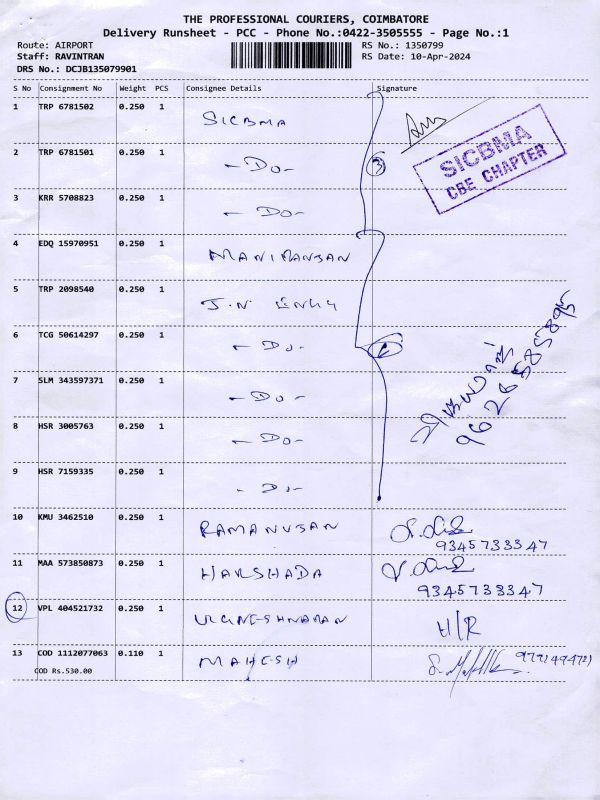 THE PROFESSIONAL COURIERS, COIMBATORE
Delivery Runsheet - PCC - Phone No.:0422-3505555 - Page No.:1
Route: AIRPORT RS No.: 1350799
Staff: RAVINTRAN RS Date: 10-Apr-2024
DRS No.: DCJB135079901
S No Consignment No Weight PCS Consignee Details Signature
1 TRP 6781502 0.250 1 SICBMA
SICBMA
CBE CHAPTER
2 TRP 6781501 0.250 1 -Do- 3
3 KRR 5708823 0.250 1 -Do-
4 EDQ 15970951 0.250 1
5 TRP 2098540 0.250 1 J.N
6 TCG 50614297 0.250 1 -Do-
7 SLM 343597371 0.250 1 -Do-
8 HSR 3005763 0.250 1 -Do-
9 HSR 7159335 0.250 1 -Do-
10 KMU 3462510 0.250 1 RAMANUJAN
9345733347
11 MAA 573850873 0.250 1 HARSHADA
9345733347
12 VPL 404521732 0.250 1 H/R
13 COD 1112077063 0.110 1 MAHESH
COD Rs.530.00